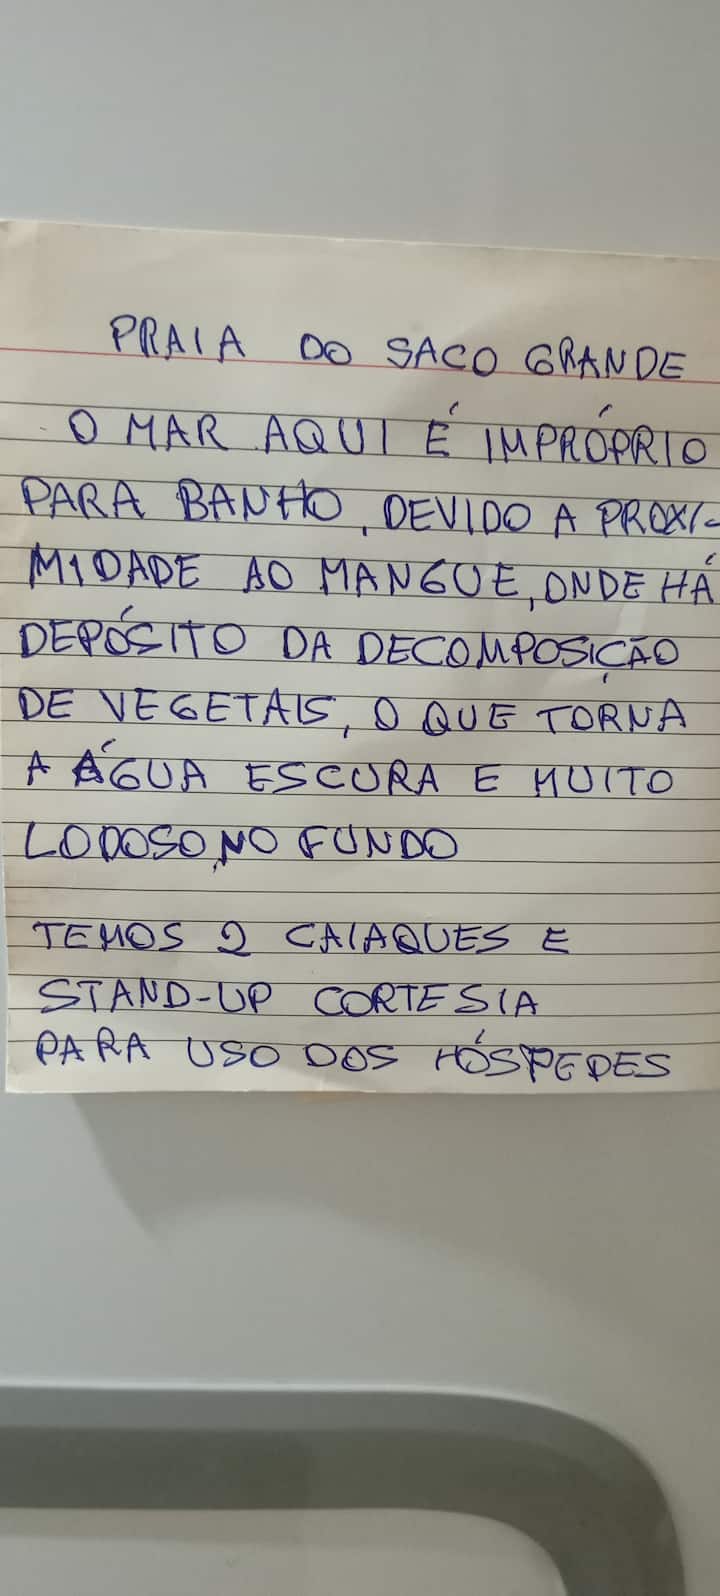 PRAIA DO SACO GRANDE
O MAR AQUI É IMPRÓPRIO
PARA BANHO, DEVIDO A PROXI-
MIDADE AO MANGUE, ONDE HÁ
DEPÓSITO DA DECOMPOSIÇÃO
DE VEGETAIS, O QUE TORNA
A ÁGUA ESCURA E MUITO
LODOSO, NO FUNDO
TEMOS 2 CAIAQUES E
STAND-UP CORTESIA
PARA USO DOS HÓSPEDES